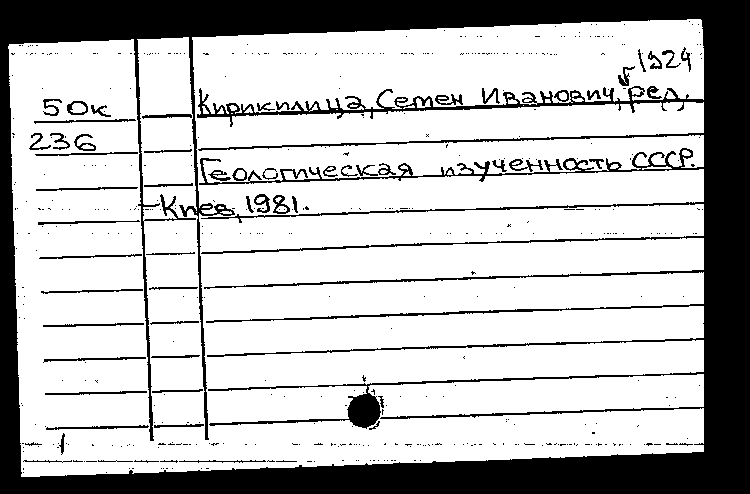 1924
50к Кирикилица, Семен Иванович, ред.
236
Геологическая изученность СССР.
–Киев, 1981.